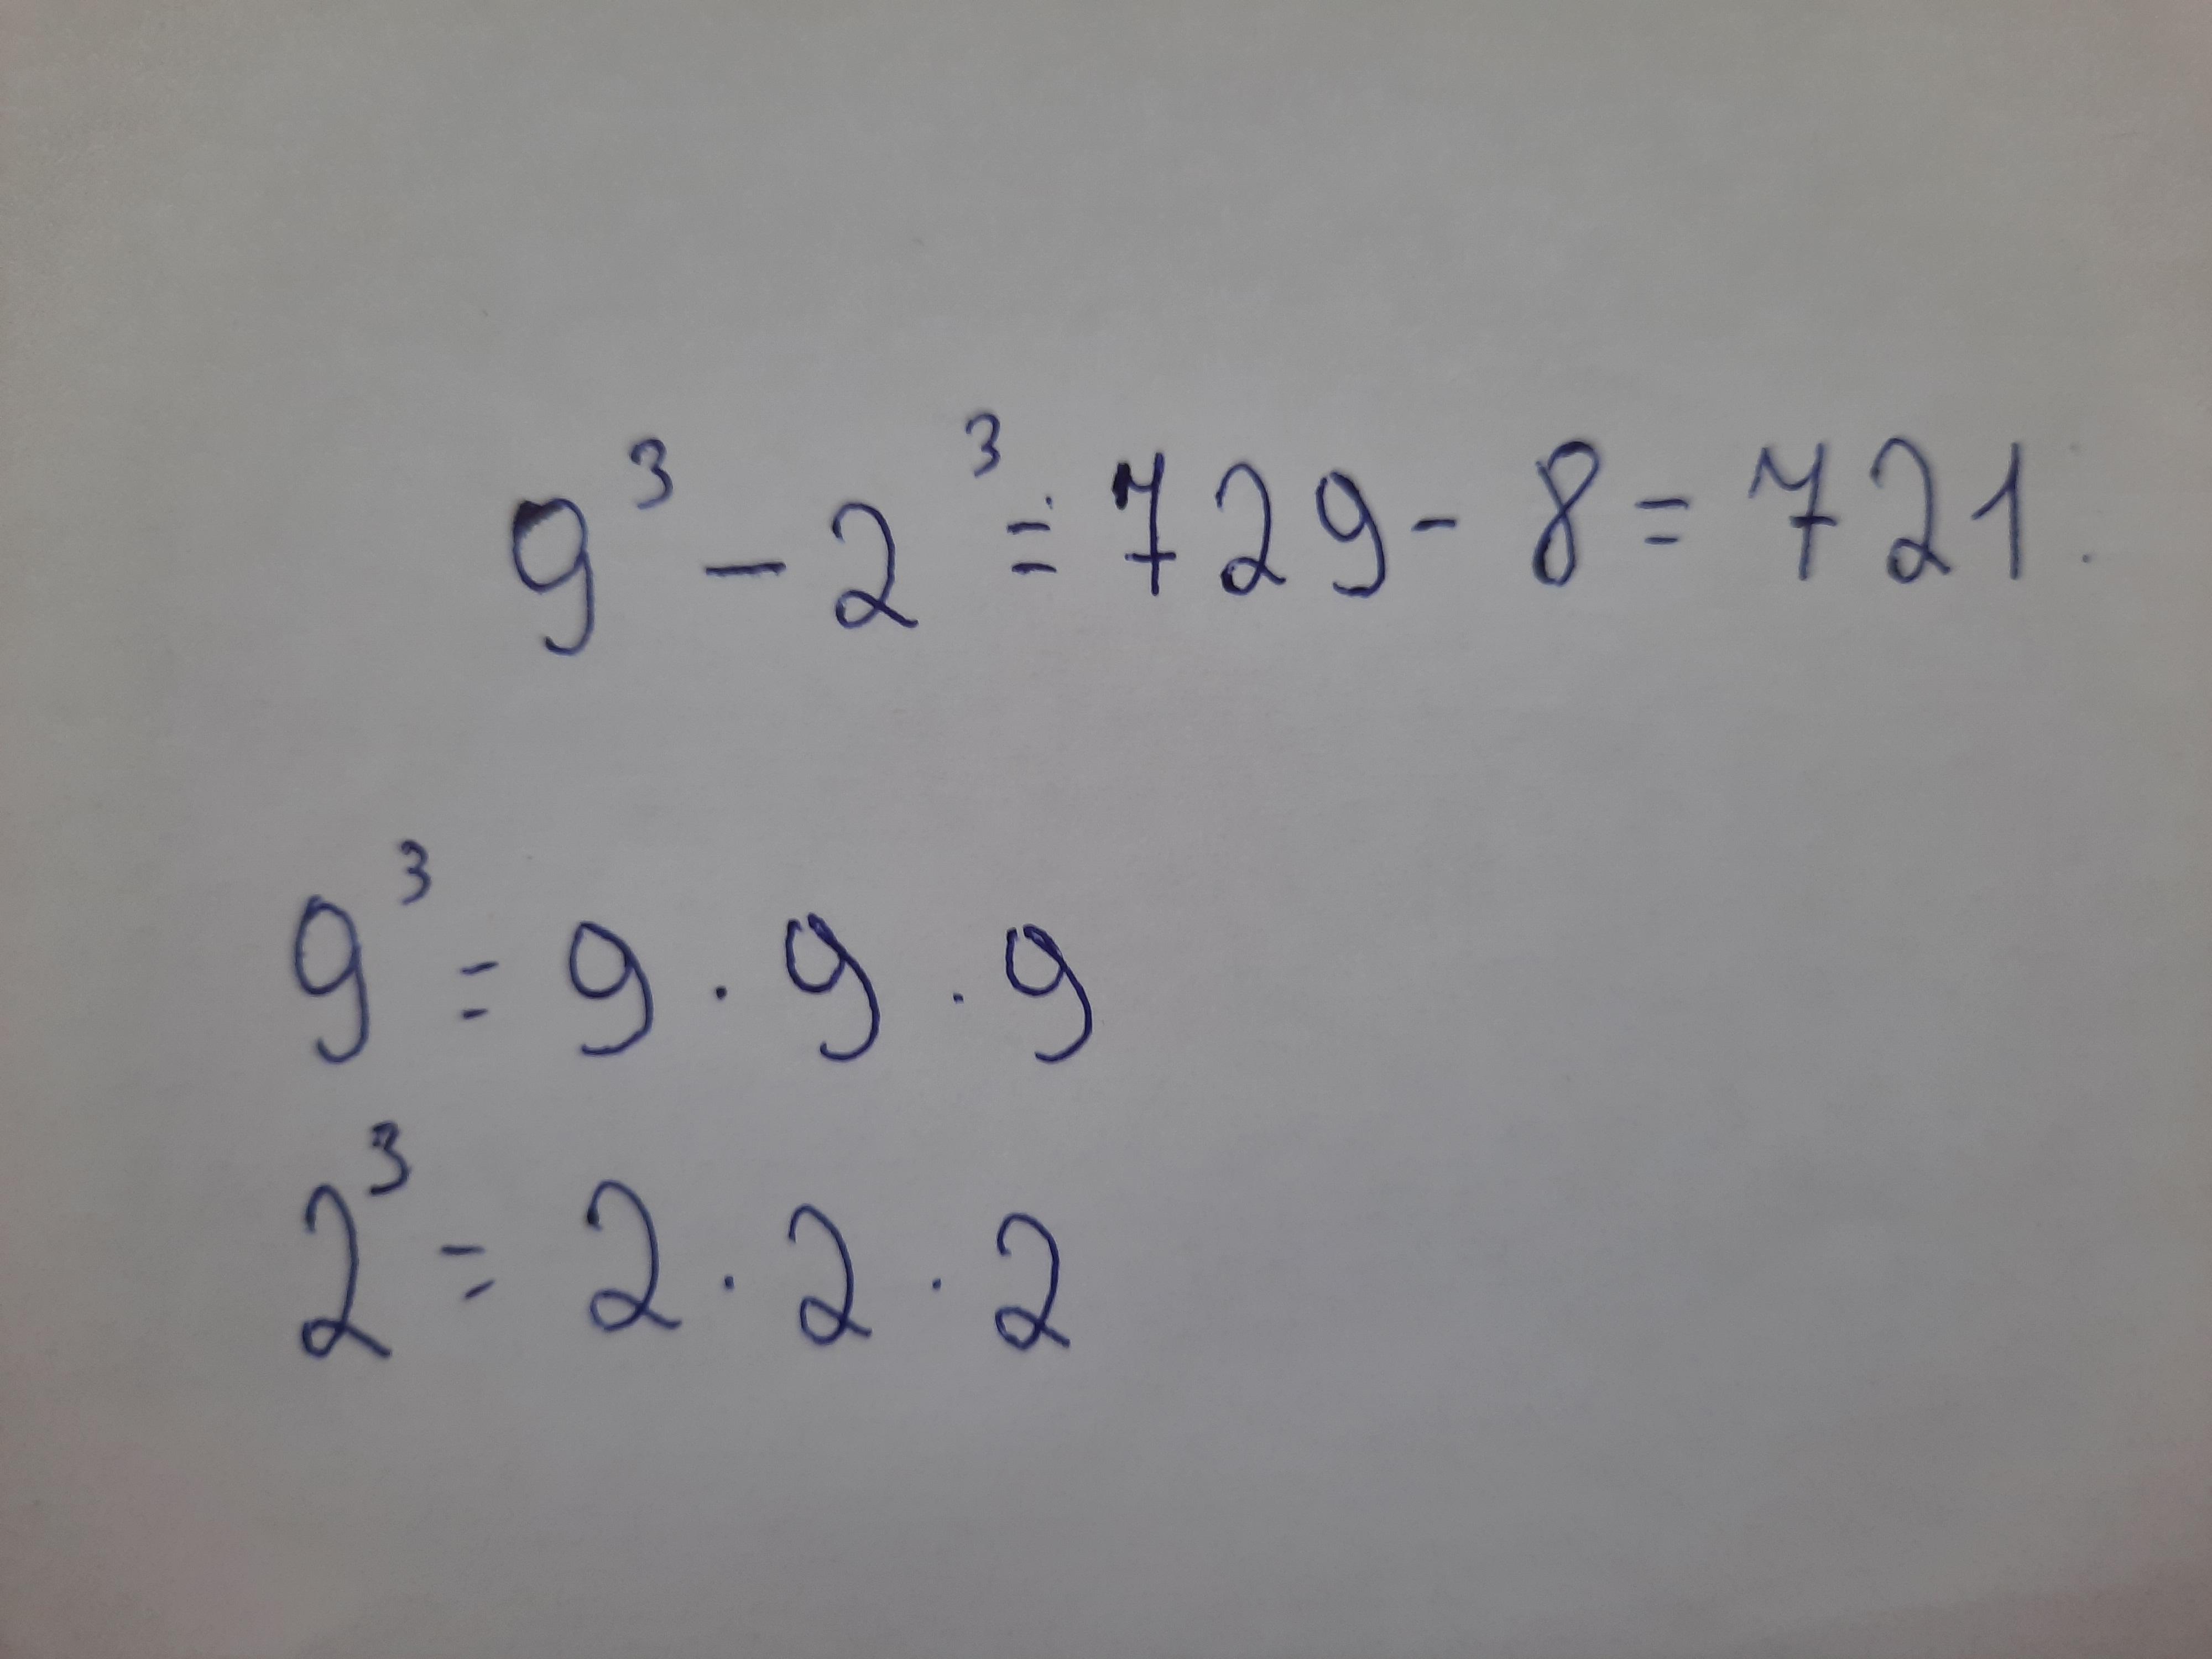 9³ - 2³ = 729 - 8 = 721.
9³ = 9 · 9 · 9
2³ = 2 · 2 · 2